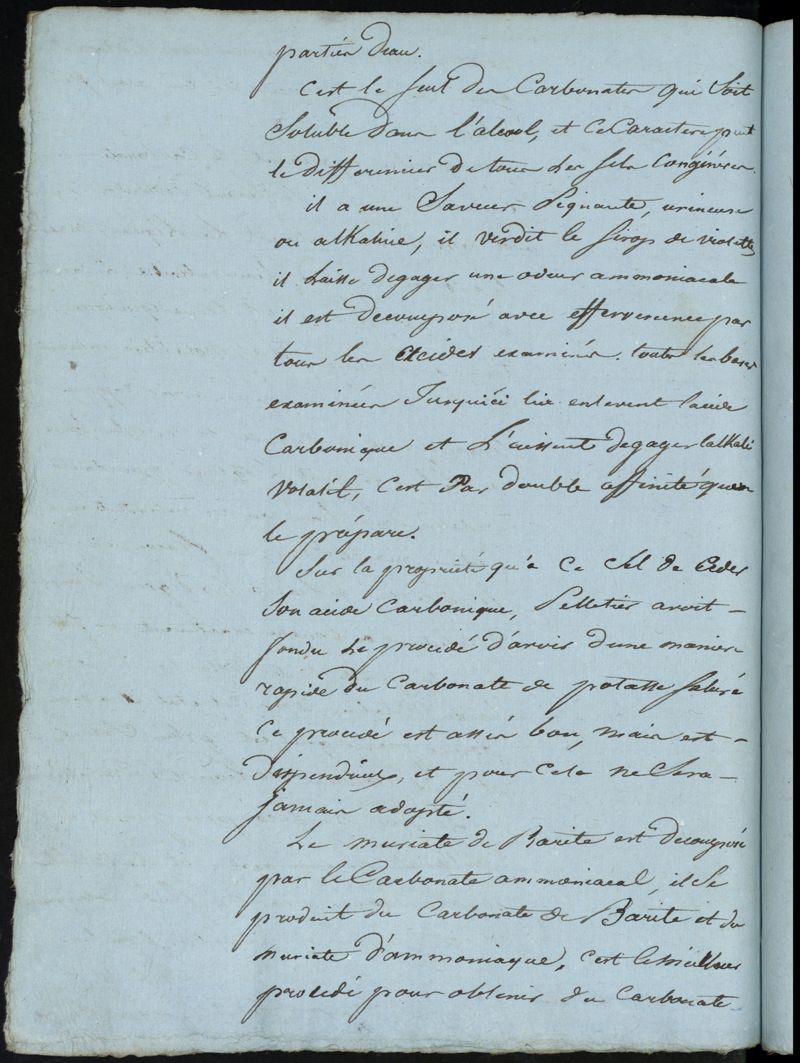 parties d'eau.
C'est le seul des Carbonates qui soit
Soluble dans l'alcool, et ce Caractere peut
le differencier de tous les sels Congénères.
il a une Saveur Piquante, urineuse
ou alkaline, il verdit le sirop de violettes
il laisse degager une odeur ammoniacale
il est decomposé avec effervescence par
tous les acides examinés. toutes les bases
examinées Jusqu'ici lui enlevent l'acide
Carbonique et laissent degager l'alkali
Volatil, c'est Par double affinité qu'on
le prépare.
Sur la propriété qu'a ce sel de Ceder
Son acide Carbonique, Pelletier avoit
fondu le procédé d'avoir d'une maniere
rapide du Carbonate de potasse saturé
Ce procédé est assés bon, mais est
dispendieux, et pour cela ne sera
jamais adopté.
Le muriate de Barite est decomposé
par le Carbonate ammoniacal, il se
produit du Carbonate de Barite et du
muriate d'ammoniaque, c'est le meilleur
procédé pour obtenir du Carbonate